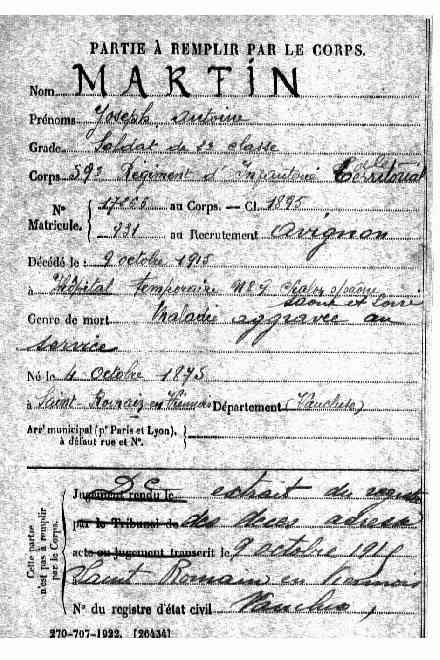 PARTIE À REMPLIR PAR LE CORPS.
Nom MARTIN
Prénoms Joseph Antoine
Grade Soldat de 2e classe
Corps 59e Régiment d'Infanterie Territorial
N° Matricule. au Corps. — Cl. 1895
931 au Recrutement Avignon
Décédé le 9 octobre 1915
à Hôpital temporaire N° Chalon s/ Saone
Saone et Loire
Genre de mort Maladie aggravée au
service
Né le 4 octobre 1875
à Saint-Romain-en-Viennois Département (Vaucluse)
Arrt municipal (pr Paris et Lyon), à défaut rue et N°.
Cette partie n'est pas à remplir par le Corps.
Jugement rendu le extrait du registre
par le Tribunal de des décès adressé
acte ou jugement transcrit le 9 octobre 1915
à Saint Romain en Viennois
N° du registre d'état civil Vaucluse
270-707-1922. [26434]